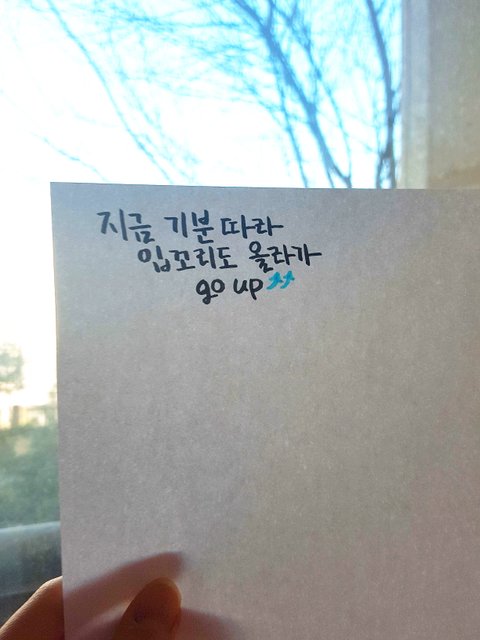 지금 기분 따라
입꼬리도 올라가
go up